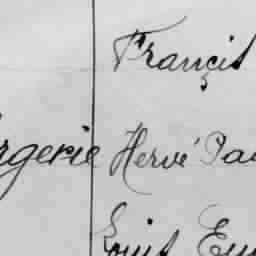 Françis
rgerie Hervé Pa
Louis Em